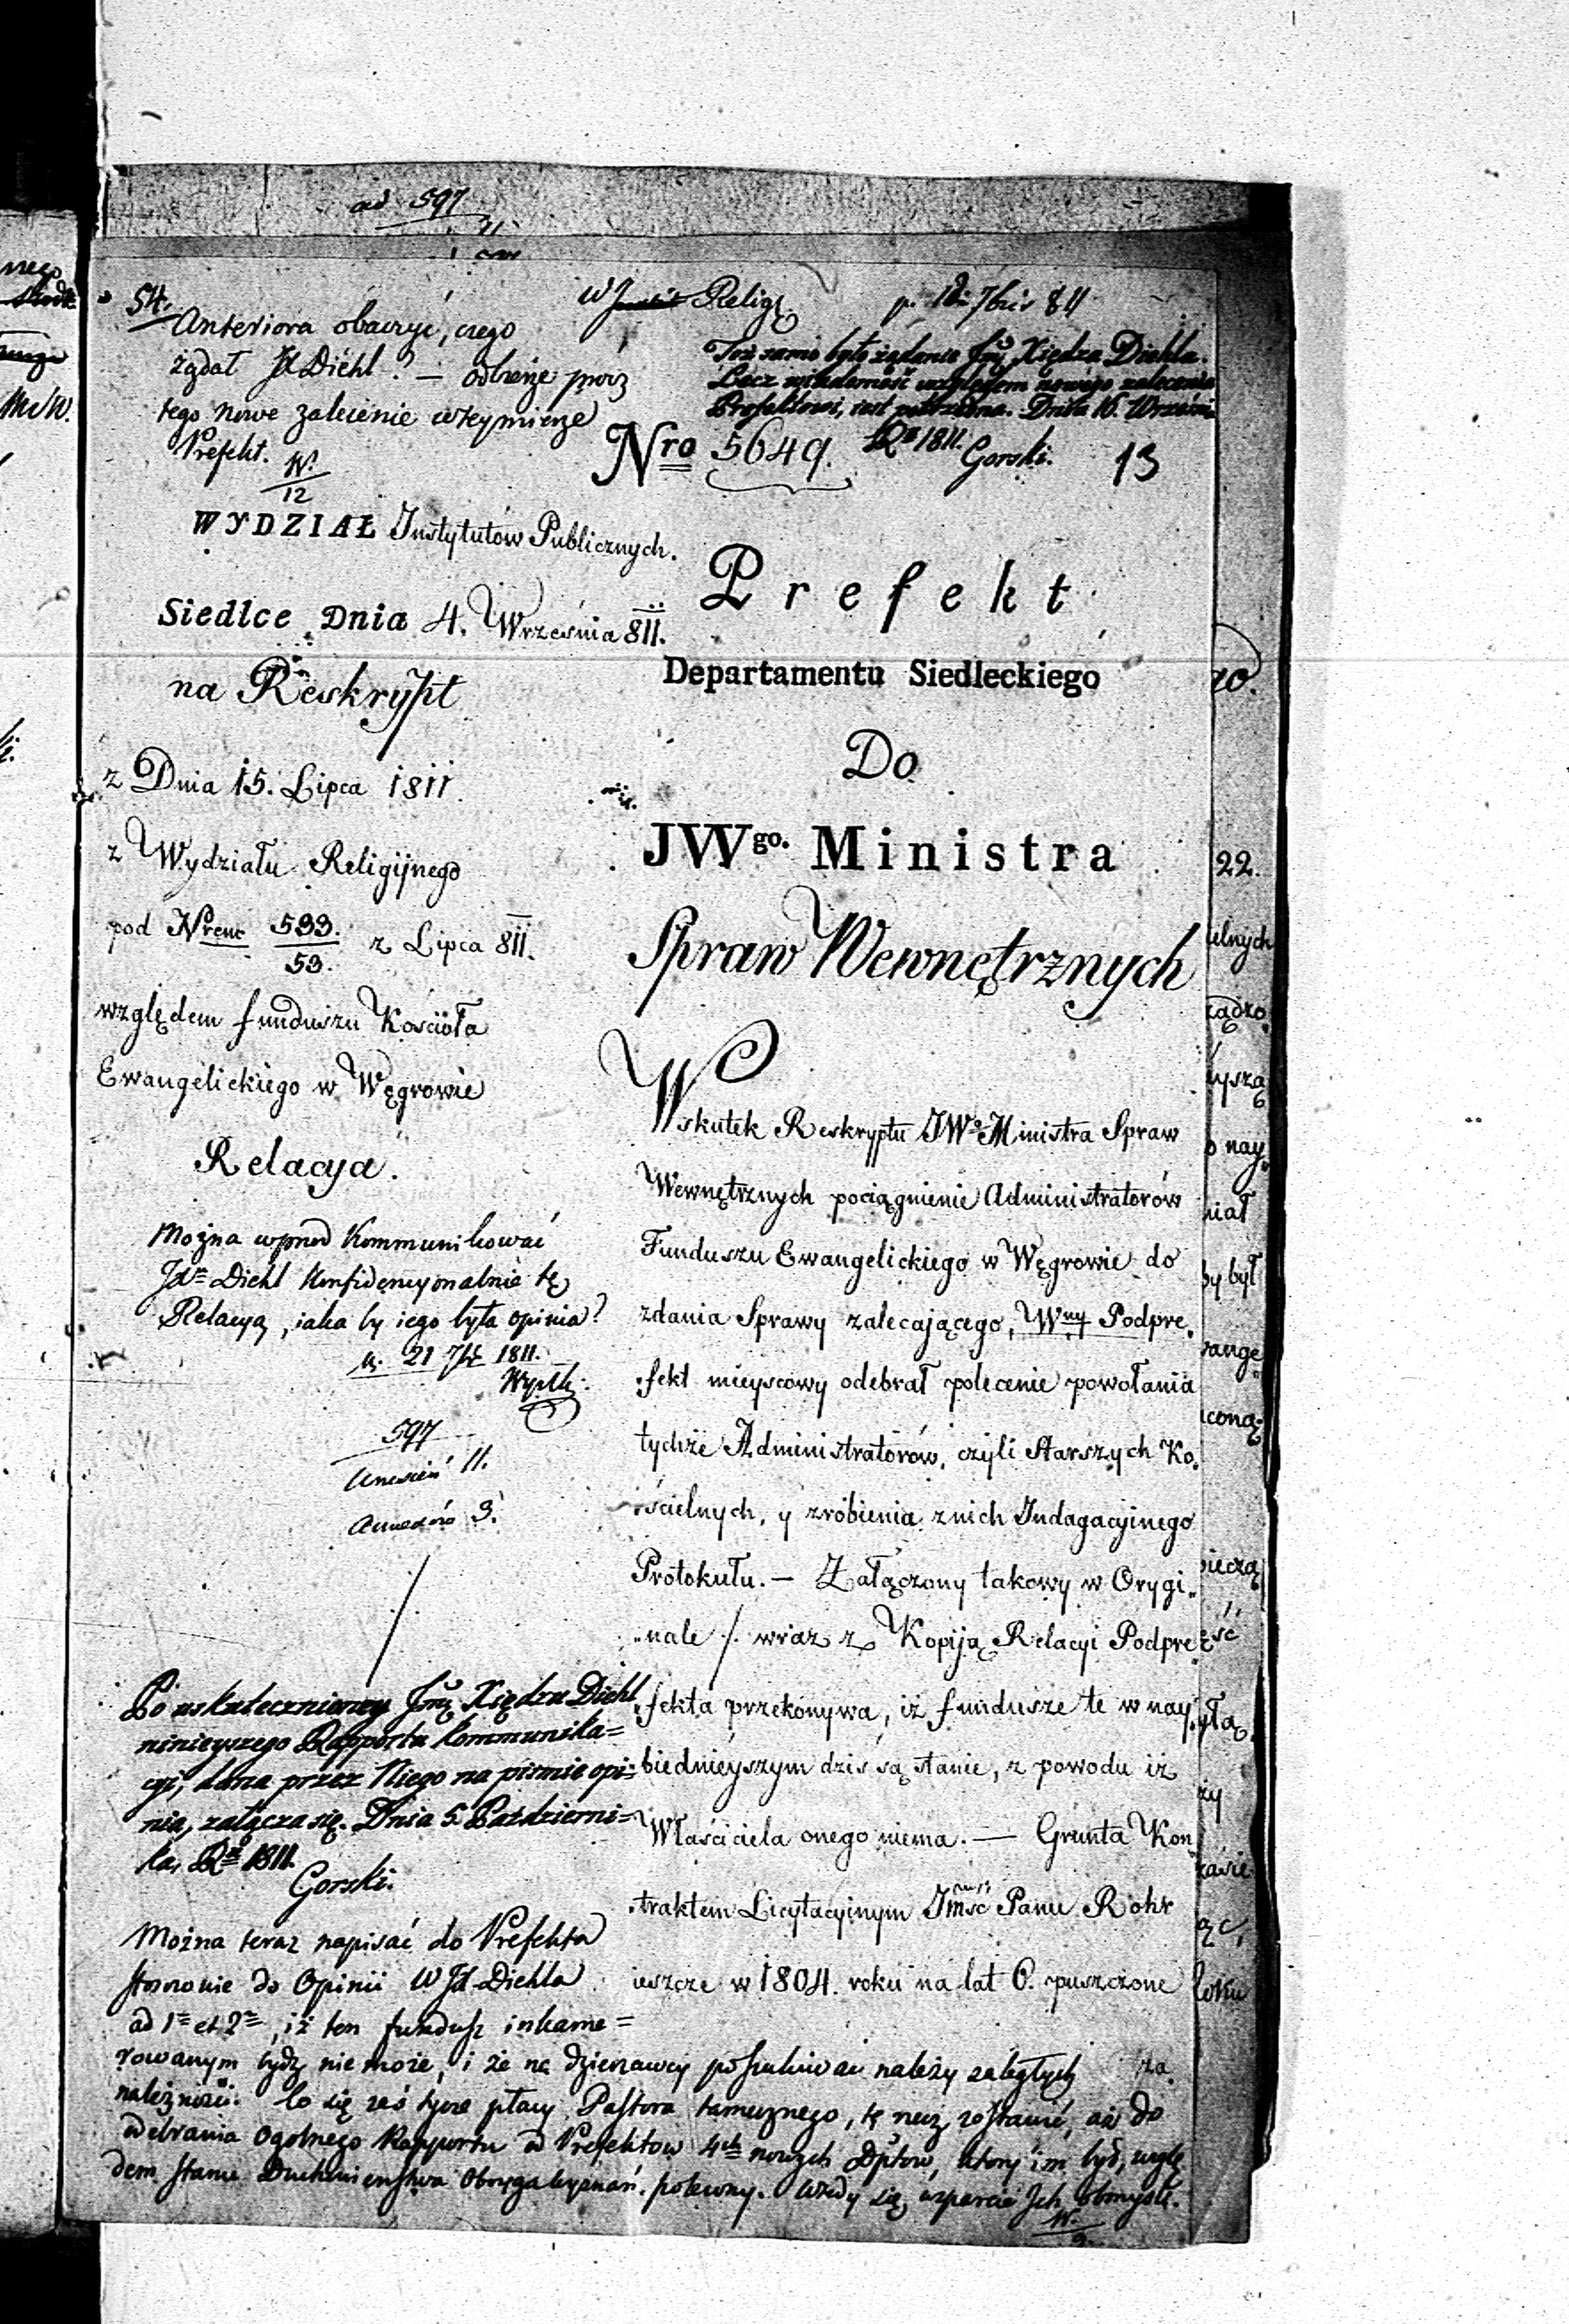 ad 597
11
54.
Anteriora obaczyć, czego
żądał JX Diehl? — odbierze przez
tego nowe zalecenie wtey mierze
Prefekt.
W.
12
W Religy
p. 12 7bris 811
Toż samo było żądanie Jmć Xiędza Diehla.
Lecz wiadomość względem nowego zalecenia
Prefektowi, iest potrzebna. Dnia 16. Wrześni
Ru 1811. Gorski.
Nro 5649.
13
WYDZIAŁ Instytutów Publicznych.
Siedlce Dnia 4. Września 811.
na Reskrypt
z Dnia 15. Lipca 1811.
z Wydziału Religijnego
pod Nrem 533. z Lipca 811.
53.
względem funduszu Kościoła
Ewangelickiego w Węgrowie
Relacya.
Można wprzod Kommunikować
Diehl Konfidencyonalnie tę
Relacyą, iaka by iego była opinia?
21 7br 1811.
597
11.
3.
Po uskutecznioney Jmć Xiędzu Diehl
ninieyszego Rapportu kommunika=
cyi, dana przez Niego na pismie opi=
nia, załącza się. Dnia 5. Październi=
ka, Ru 1811.
Gorski.
Można teraz napisać do Prefekta
stosownie do Opinii W JX Diehla
ad 1m et 2m, iż ten fundusz inkame=
rowanym bydź nie może, i że na dzierzawcy poszukiwać należy zaległych
należności. Co się zaś tycze płacy Pastora tamecznego, tę rzecz zostawić, aż do
odebrania Ogolnego Rapportu od Prefektow 4ch nowych Dptow, ktory im był, wzglę
dem stanu Duchowieństwa Oboyga wyznań, polecony. Wtedy się wsparcie Ich obmyśli.
W.
Prefekt
Departamentu Siedleckiego
Do
JWgo. Ministra
Spraw Wewnętrznych
Wskutek Reskryptu JWo Ministra Spraw
Wewnętrznych pociągnienie Administratorów
Funduszu Ewangelickiego w Węgrowie do
zdania Sprawy zalecającego, Wny Podpre„
„fekt mieyscowy odebrał polecenie powołania
tychże Administratorów, czyli Starszych Ko„
„ścielnych, y zrobienia z nich Indagacyinego
Protokułu. — Załączony takowy w Orygi„
„nale /. wraz z Kopiją Relacyi Podpre
„fekta przekonywa, iż fundusze te w nay„
biednieyszym dziś są stanie, z powodu iż
Właściciela onego niema. — Grunta Kon
„traktem Licytacyinym Jmść Panu Rohr
ieszcze w 1804. roku na lat 6. puszczone
za.